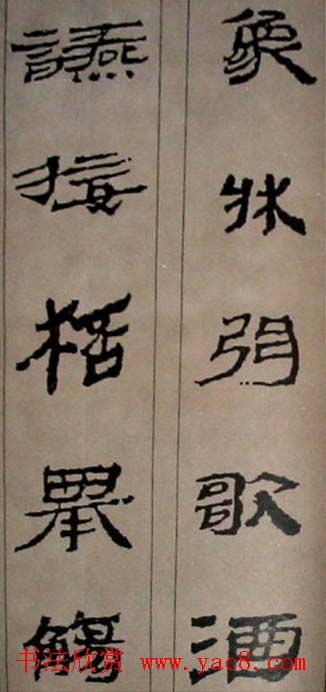 象牀弦歌酒
讌接桮舉觴
书法欣赏 www.yac8.com